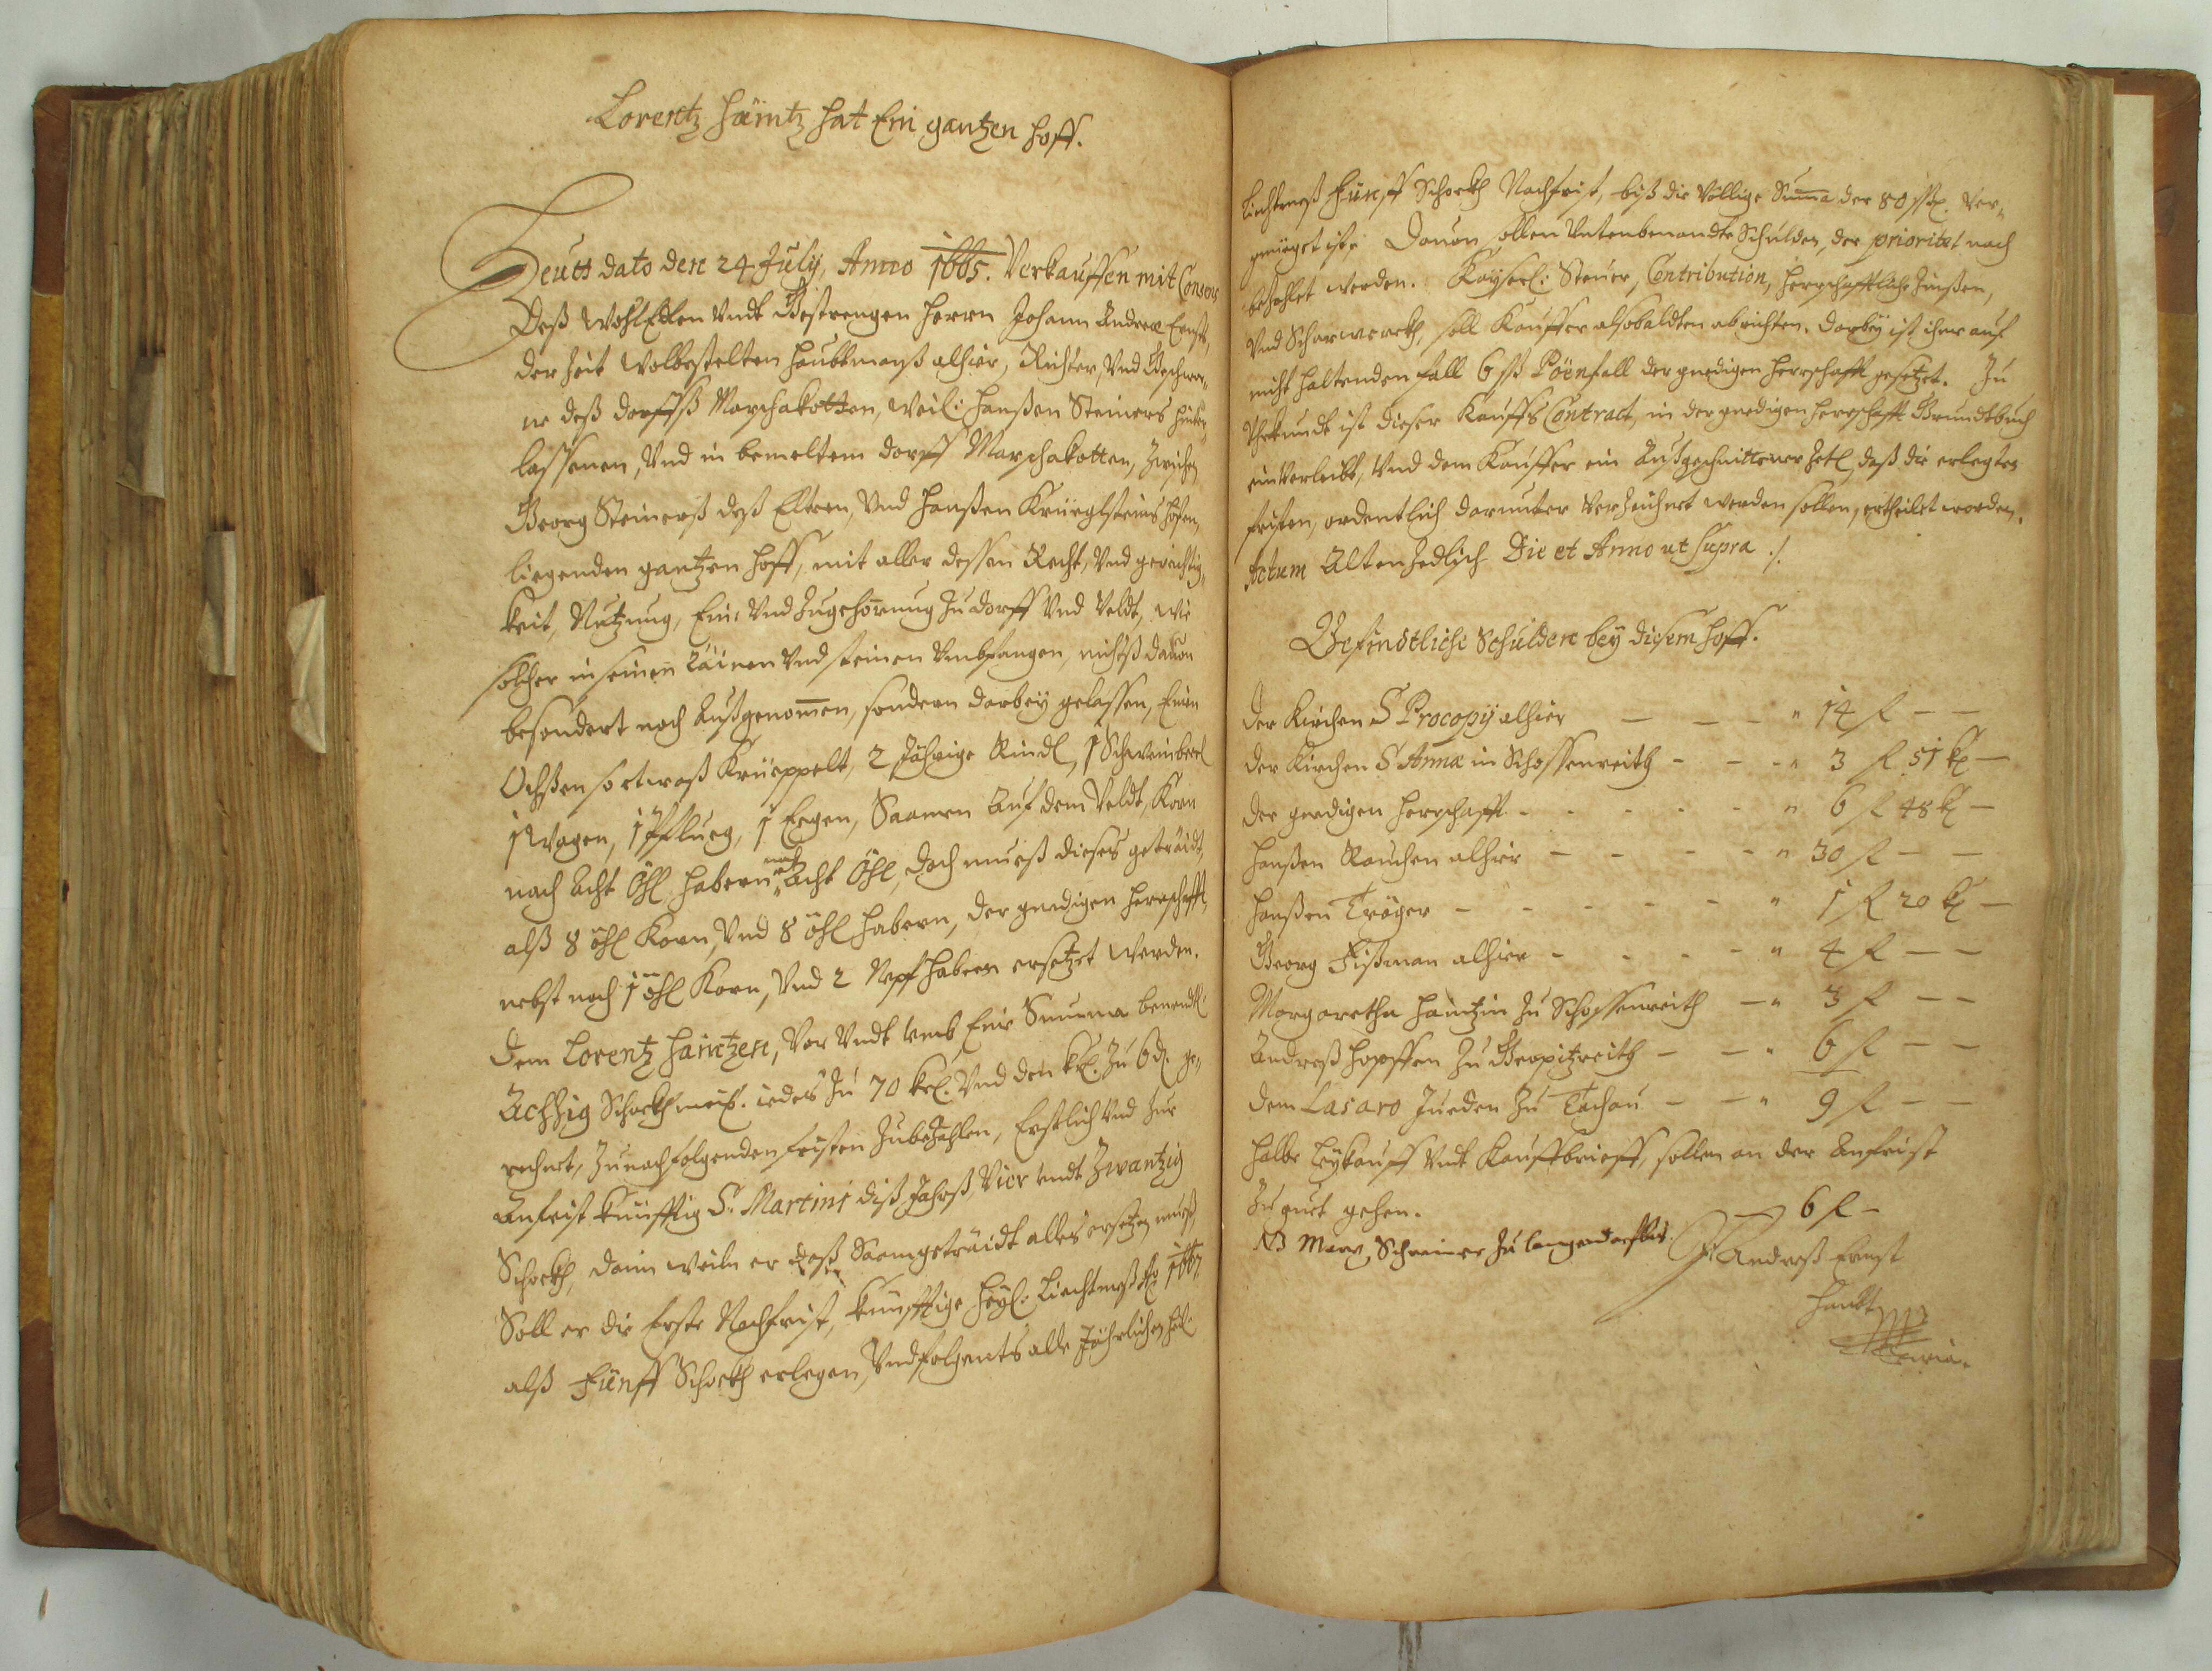 Lorentz Häintz hat Ein gantzen Hoff.
Heuts dato den 24 July, Anno 1665. Verkauffen mit Consens
Deß WohlEdlen Vndt Gestrengen Herrn Johann Andreæ Ernst,
der Zeit Wolbestelten Haubtmanß alhier, Richter, Vnd Geschwor,
ne deß dorffß Marschakotten, Weil: Hanßen Steiners hinter,
lassenen, Vnd in bemeltem dorff Marschakotten, Zwischen
Georg Steinerß deß Eltern, Vnd Hanßen Krüeglsteins höfen,
liegenden gantzen Hoff, mit aller dessen Recht, Vnd gerechtig,
keit, Nutzung, Ein: Vnd Zugehörung Zu dorff Vnd Veldt, Wie
solcher in seinen Räinen Vnd steinen Vmbfangen, nichtß dauon
besondert noch Außgenom̄en, sondern darbey gelassen, Einen
Ochßen so etwaß Krüeppelt, 2 Jährige Rindl, 1 Schweinberl
1 Wagen, 1 Pflueg, 1 Eegen, Saamen Auf dem Veldt, Korn
nach Acht Öhl Habern, nach Acht Öhl, doch mueß dieses geträidt,
alß 8 öhl Korn, Vnd 8 öhl Habern, der gnedigen Herrschafft,
nebst noch 1 öhl Korn, Vnd 2 Napf Habern ersetzet werden.
Dem Lorentz Haintzen, Vor Vndt vmb Eine Summa benendtl:
Achzig Schockh meiß. iedes Zu 70 krl. Vnd den kr. Zu 6 d. ge,
rechnet, Zu nachfolgenden fristen Zubezahlen, Erstlich Vnd Zur
Anfrist künfftig S. Martini diß Jahrß, Vier vndt Zwantzig
Schockh, dann weiln er daß Saamgeträidt alles ersetzen mueß,
Soll er die Erste Nachfrist, künfftige Heyl: Liechtmeß Ao 1667
alß Fünff Schockh erlegen, Vnd folgents alle Jährlichen Heil:
Liechtmeß Fünff Schockh Nachfrist, biß die Völlige Summa der 80 ßß. Ver,
gnüeget ist. Dauon sollen Vntenbenandte Schulden, der prioritet nach
bezahlet werden. Kayserl: Steuer, Contribution, Herrschafftliche Zinßen,
Vnd Scharwerckh, soll Kauffer alsobaldten abrichten. Darbey ist ihme auf
nicht haltenden fall 6 ßß Pöenfall der gnedigen Herrschafft gesetzet. Zu
Vhrkundt ist dieser Kauffs Contract, in der gnedigen Herrschafft Grundtbuch
einVerleibt, Vnd dem Kauffer ein Außgeschnittener Zetl, daß die erlegten
fristen, ordentlich darunter Verzeichnet werden sollen, ertheilet worden.
Actum Altenzedlisch Die et Anno ut supra ./.
Befindtliche Schulden bey diesem Hoff.
Der Kirchen S Procopy alhier — — — " 14 f — —
Der Kirchen S Annæ in Schossenreith - - - " 3 f 51 kr —
Der gnedigen Herrschafft - - - - - " 6 f 48 kr —
Hanßen Rauchen alhier — - - - " 30 f — —
Hanßen Träger — - - - - " 1 f 20 kr —
Georg Fißman alhier - - - - " 4 f — —
Margaretha Haintzin Zu Schossenreith — " 3 f — —
Andreß Hopffen Zu Gropitzreith — — " 6 f — —
Dem Lasaro Jueden Zu Tachau — — " 9 f — —
Halbe Leykauff Vndt Kauffbrieff, sollen an der Anfrist
Zu guet gehen. — 6 f —
NB Marx Schreiner Zu langendorfles.
Andreß Ernst
Haubt